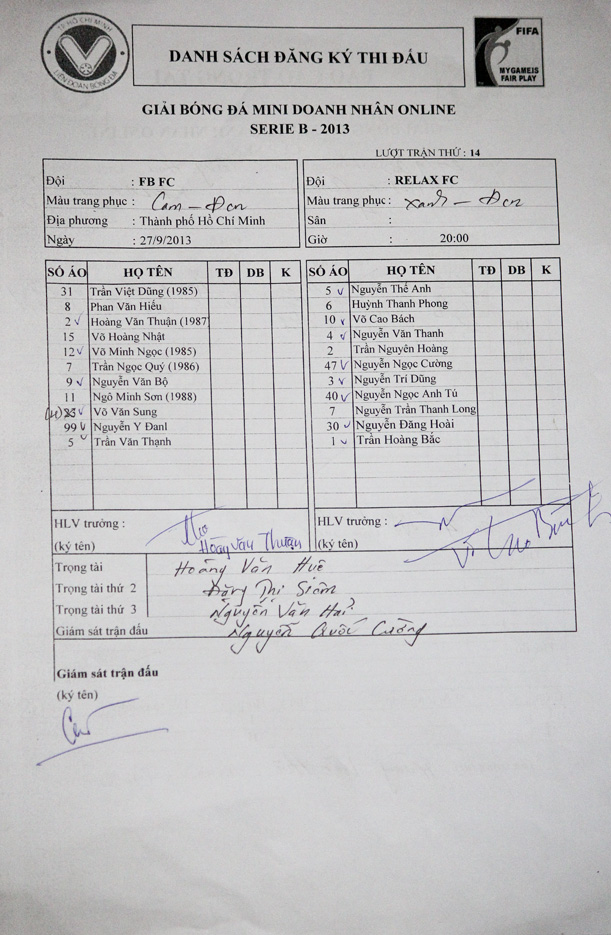 TP. HỒ CHÍ MINH
LIÊN ĐOÀN BÓNG ĐÁ
DANH SÁCH ĐĂNG KÝ THI ĐẤU
FIFA
MY GAME IS
FAIR PLAY
GIẢI BÓNG ĐÁ MINI DOANH NHÂN ONLINE
SERIE B - 2013
LƯỢT TRẬN THỨ : 14
Đội : FB FC
Màu trang phục : Cam - Đen
Địa phương : Thành phố Hồ Chí Minh
Ngày 27/9/2013
Đội : RELAX FC
Màu trang phục : Xanh - Đen
Sân :
Giờ 20:00
SỐ ÁO HỌ TÊN TĐ DB K
31 Trần Việt Dũng (1985)
8 Phan Văn Hiếu
2 Hoàng Văn Thuận (1987
15 Võ Hoàng Nhật
12 Võ Minh Ngọc (1985)
7 Trần Ngọc Quý (1986)
9 Nguyễn Văn Bộ
11 Ngô Minh Sơn (1988)
Võ Văn Sung
99 Nguyễn Y Đanl
5 Trần Văn Thạnh
SỐ ÁO HỌ TÊN TĐ DB K
5 Nguyễn Thế Anh
6 Huỳnh Thanh Phong
10 Võ Cao Bách
4 Nguyễn Văn Thanh
2 Trần Nguyên Hoàng
47 Nguyễn Ngọc Cường
3 Nguyễn Trí Dũng
40 Nguyễn Ngọc Anh Tú
7 Nguyễn Trần Thanh Long
30 Nguyễn Đăng Hoài
1 Trần Hoàng Bắc
HLV trưởng :
(ký tên) Hoàng Văn Thuận
HLV trưởng :
(ký tên)
Trọng tài Hoàng Văn Huê
Trọng tài thứ 2 Đặng Thị
Trọng tài thứ 3 Nguyễn Văn Hải
Giám sát trận đấu Nguyễn Quốc Cường
Giám sát trận đấu
(ký tên)